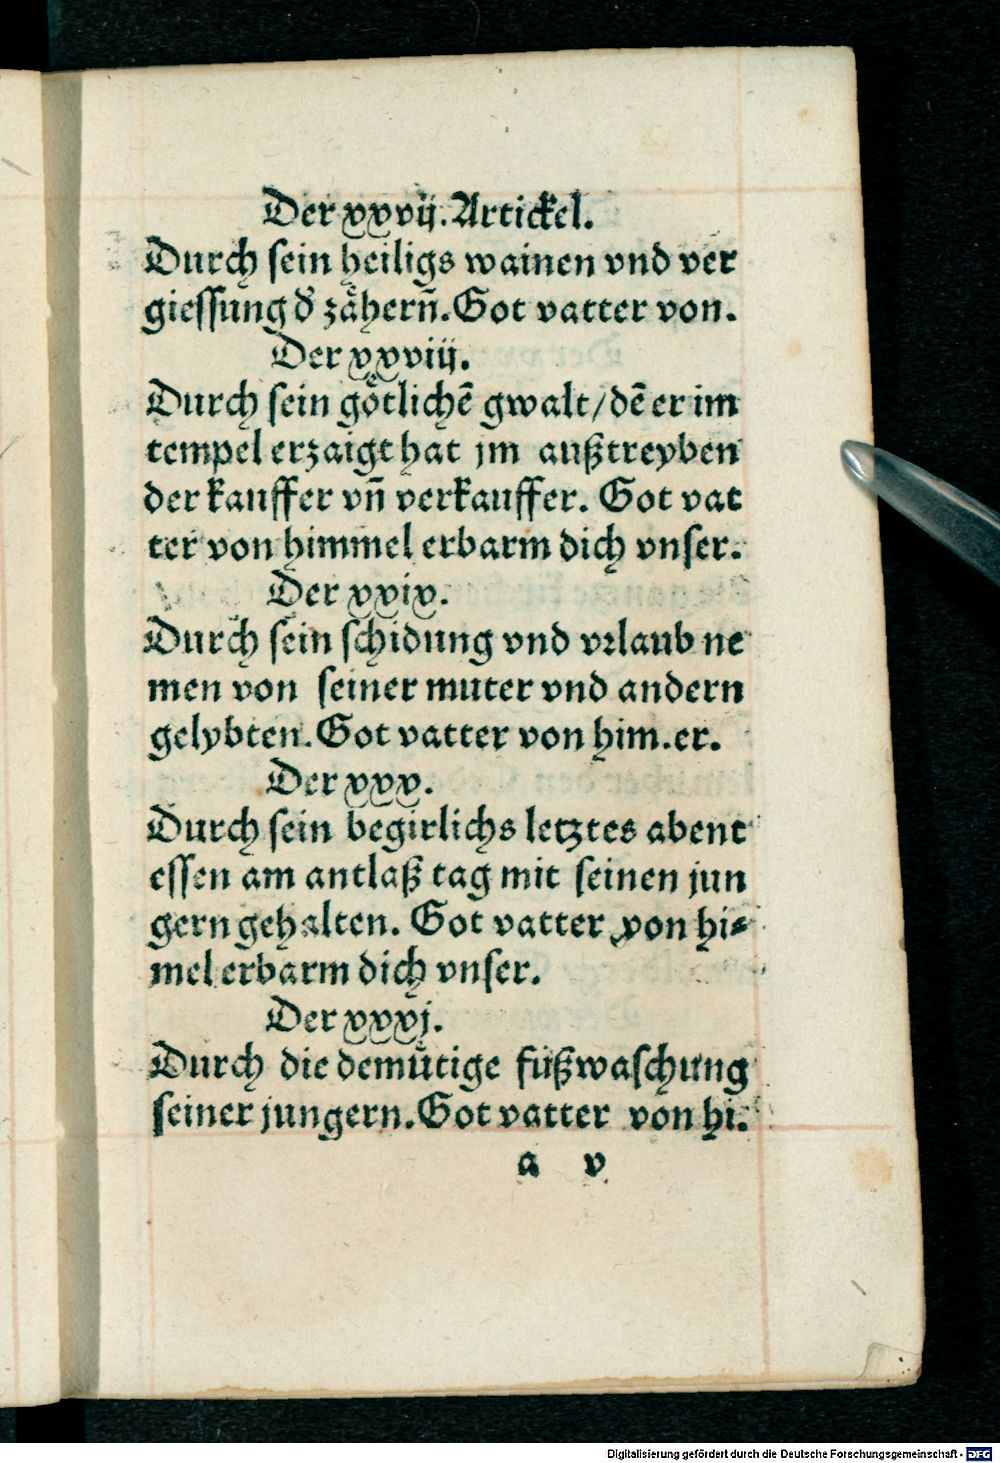 Der xxvij. Artickel.
Durch sein heiligs wainen vnd ver
giessung d̕ zaͤhern̄. Got vatter von.
Der xxviij.
Durch sein goͤtlichē gwalt/dē er im
tempel erzaigt hat jm außtreyben
der kauffer vn̄ verkauffer. Got vat
ter von himmel erbarm dich vnser.
Der xxix.
Durch sein schidung vnd vrlaub ne
men von seiner muter vnd andern
gelybten. Got vatter von him.er.
Der xxx.
Durch sein begirlichs letztes abent
essen am antlaß tag mit seinen jun
gern gehalten. Got vatter von hi⸗
mel erbarm dich vnser.
Der xxxj.
Durch die demuͤtige fußwaschung
seiner jungern. Got vatter von hi.
a v
Digitalisierung gefördert durch die Deutsche Forschungsgemeinschaft - DFG